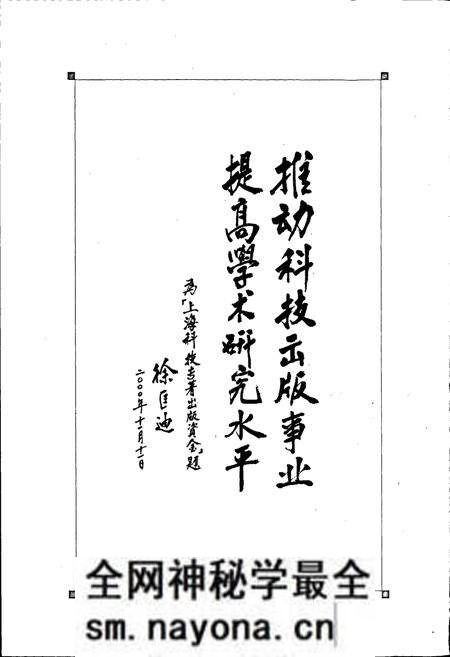 推动科技出版事业
提高學术研究水平
为「上海科技专著出版资金」题
徐匡迪
二〇〇〇年十一月十一日
全网神秘学最全
sm.nayona.cn